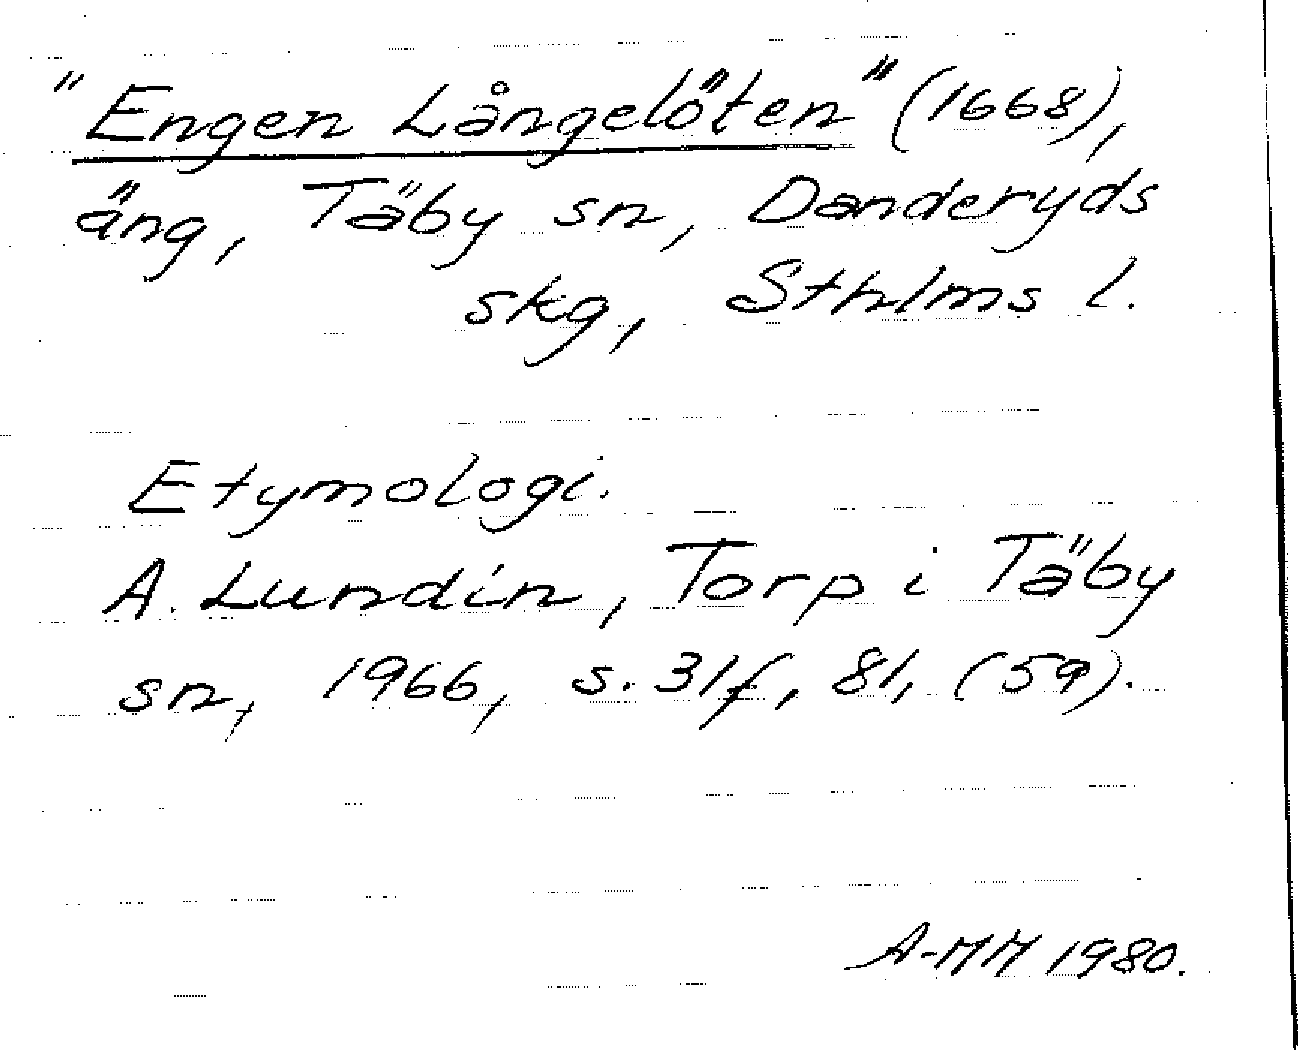 "Engen Långelöten" (1668),
äng, Täby sn, Danderyds
skg, Sthlms l.
Etymologi.
A. Lundin, Torp i Täby
sn, 1966, s. 31f, 81, (59).
A-MM 1980.